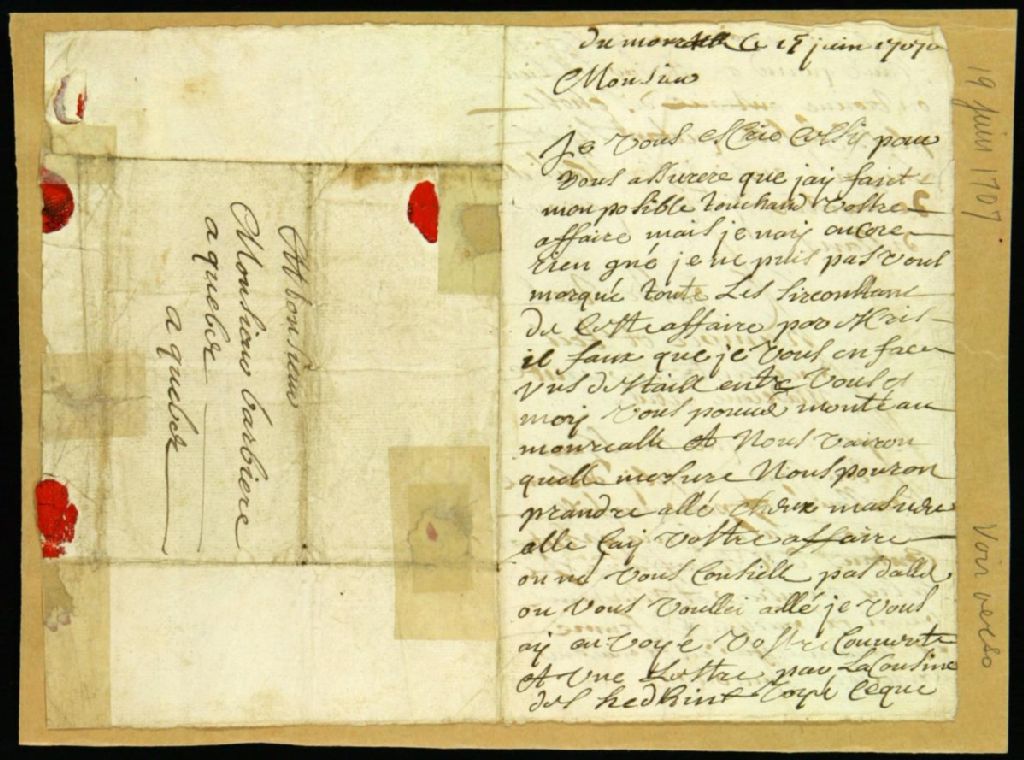 A Monsieur
Monsieur barbiere
a quebek
a quebek
le 19 juin 1707
Monsieur
Je vous pour
vous assurere que jay faict
mon posible touchand vostre
affaire mais je nay encore
rien gné je ne puis pas vous
morqué toute Les sirconstans
de ceste affaire par
il faux que je vous en face
vns destaill entre vous et
moy vous pouué monté au
monrealle et Nous vairon
quell mesure Nous pouron
prandre allé
alle vostre affaire
on ne vous Conseill pas dallé
ou vous voullei allé je vous
ay anvoyé vostre Couuerte
et vne Lettre par La Cousine
des ceque
19 juin 1707
Voir verso